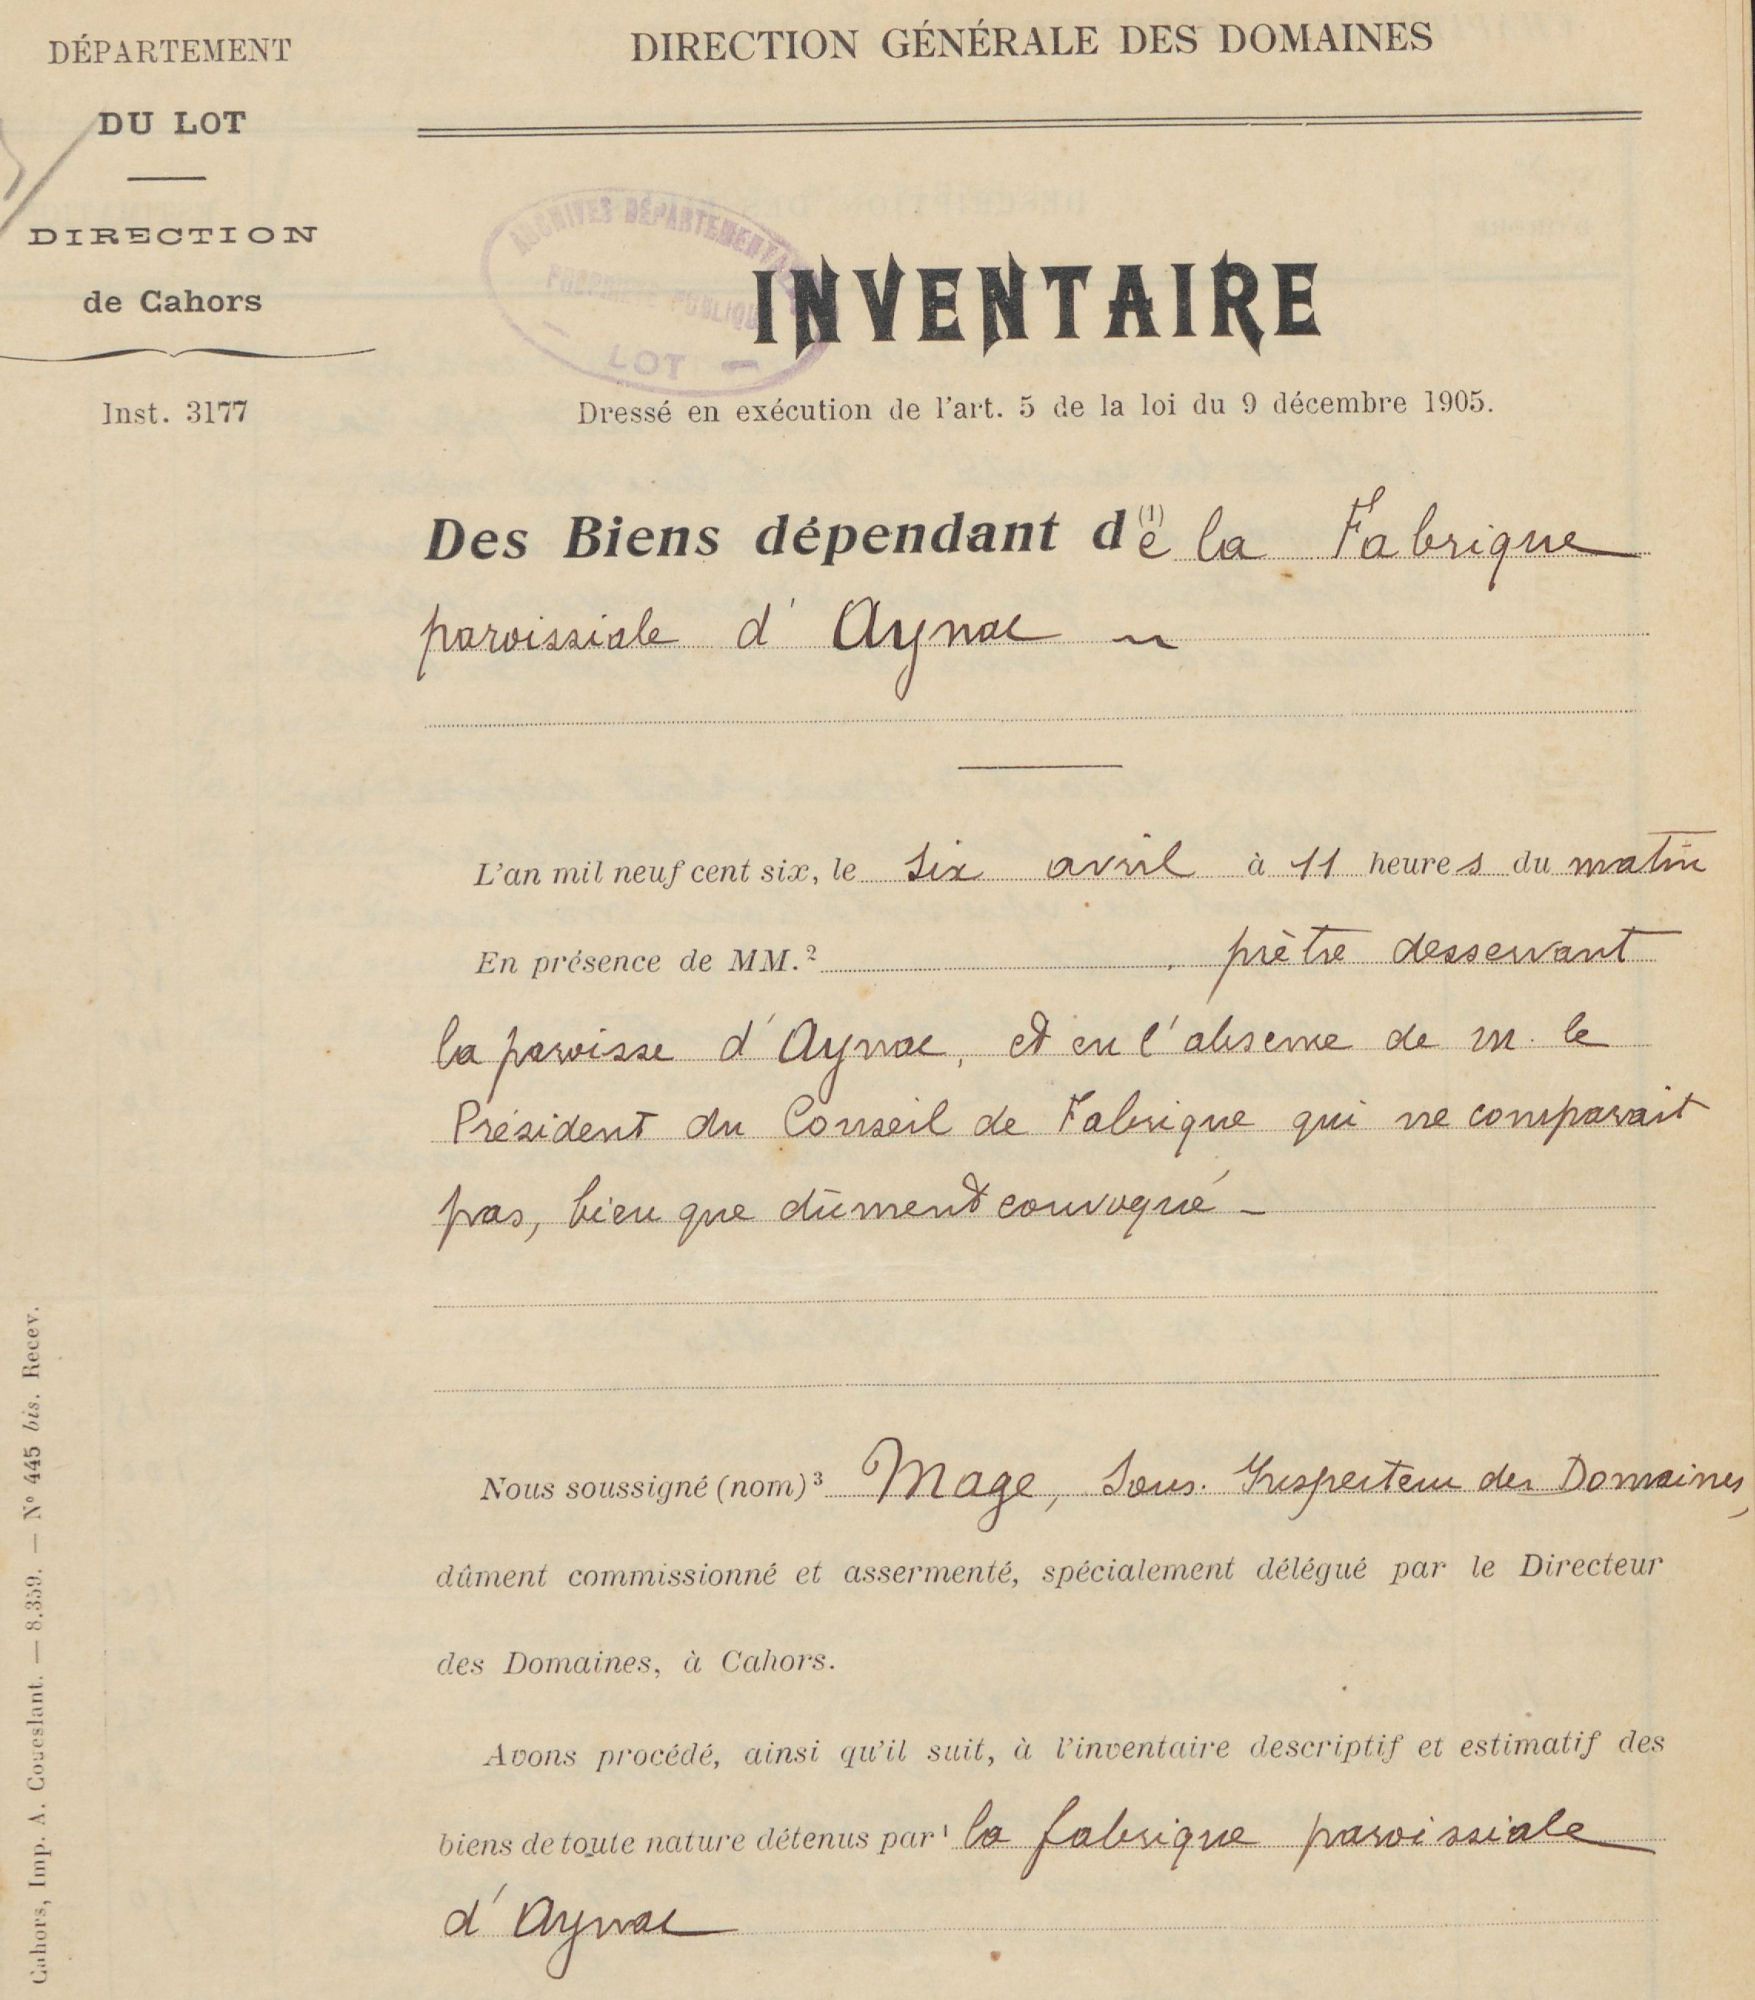 DÉPARTEMENT
DU LOT
DIRECTION
de Cahors
Inst. 3177
DIRECTION GÉNÉRALE DES DOMAINES
ARCHIVES DÉPARTEMENTALES
PROPRIÉTÉ PUBLIQUE
— LOT —
INVENTAIRE
Dressé en exécution de l'art. 5 de la loi du 9 décembre 1905.
Des Biens dépendant d(1)e la Fabrique
paroissiale d'Aynac ~
L'an mil neuf cent six, le six avril à 11 heures du matin
En présence de MM.² prètre desservant
la paroisse d'Aynac, et en l'absence de M. le
Président du Conseil de Fabrique qui ne comparait
pas, bien que dûment convoqué —
Nous soussigné (nom)³ Mage, Sous-Inspecteur des Domaines,
dûment commissionné et assermenté, spécialement délégué par le Directeur
des Domaines, à Cahors.
Avons procédé, ainsi qu'il suit, à l'inventaire descriptif et estimatif des
biens de toute nature détenus par¹ la fabrique paroissiale
d'Aynac
Cahors, Imp. A. Coueslant. — 8.359. — N° 445 bis. Recev.